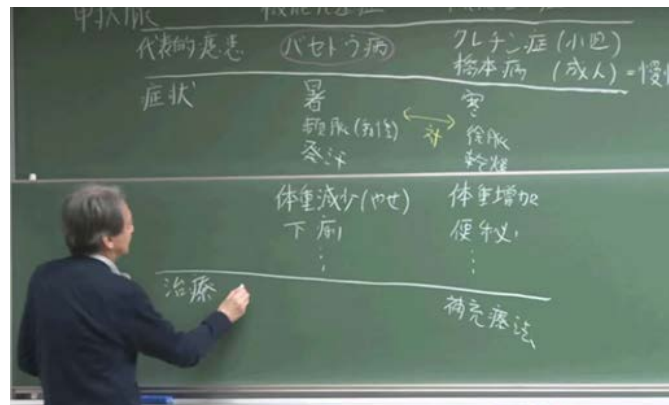 甲状腺 機能亢進症 機能低下症
代表的疾患 バセドウ病 クレチン症(小児)
橋本病 (成人) = 慢性
症状 暑 寒
頻脈(動悸) 徐脈
発汗 乾燥
体重減少(やせ) 体重増加
下痢 便秘
⋮ ⋮
治療 補充療法